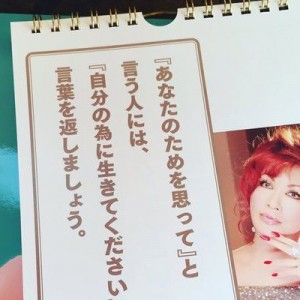 『あなたのためを思って』と
言う人には、
『自分の為に生きてください
言葉を返しましょう。